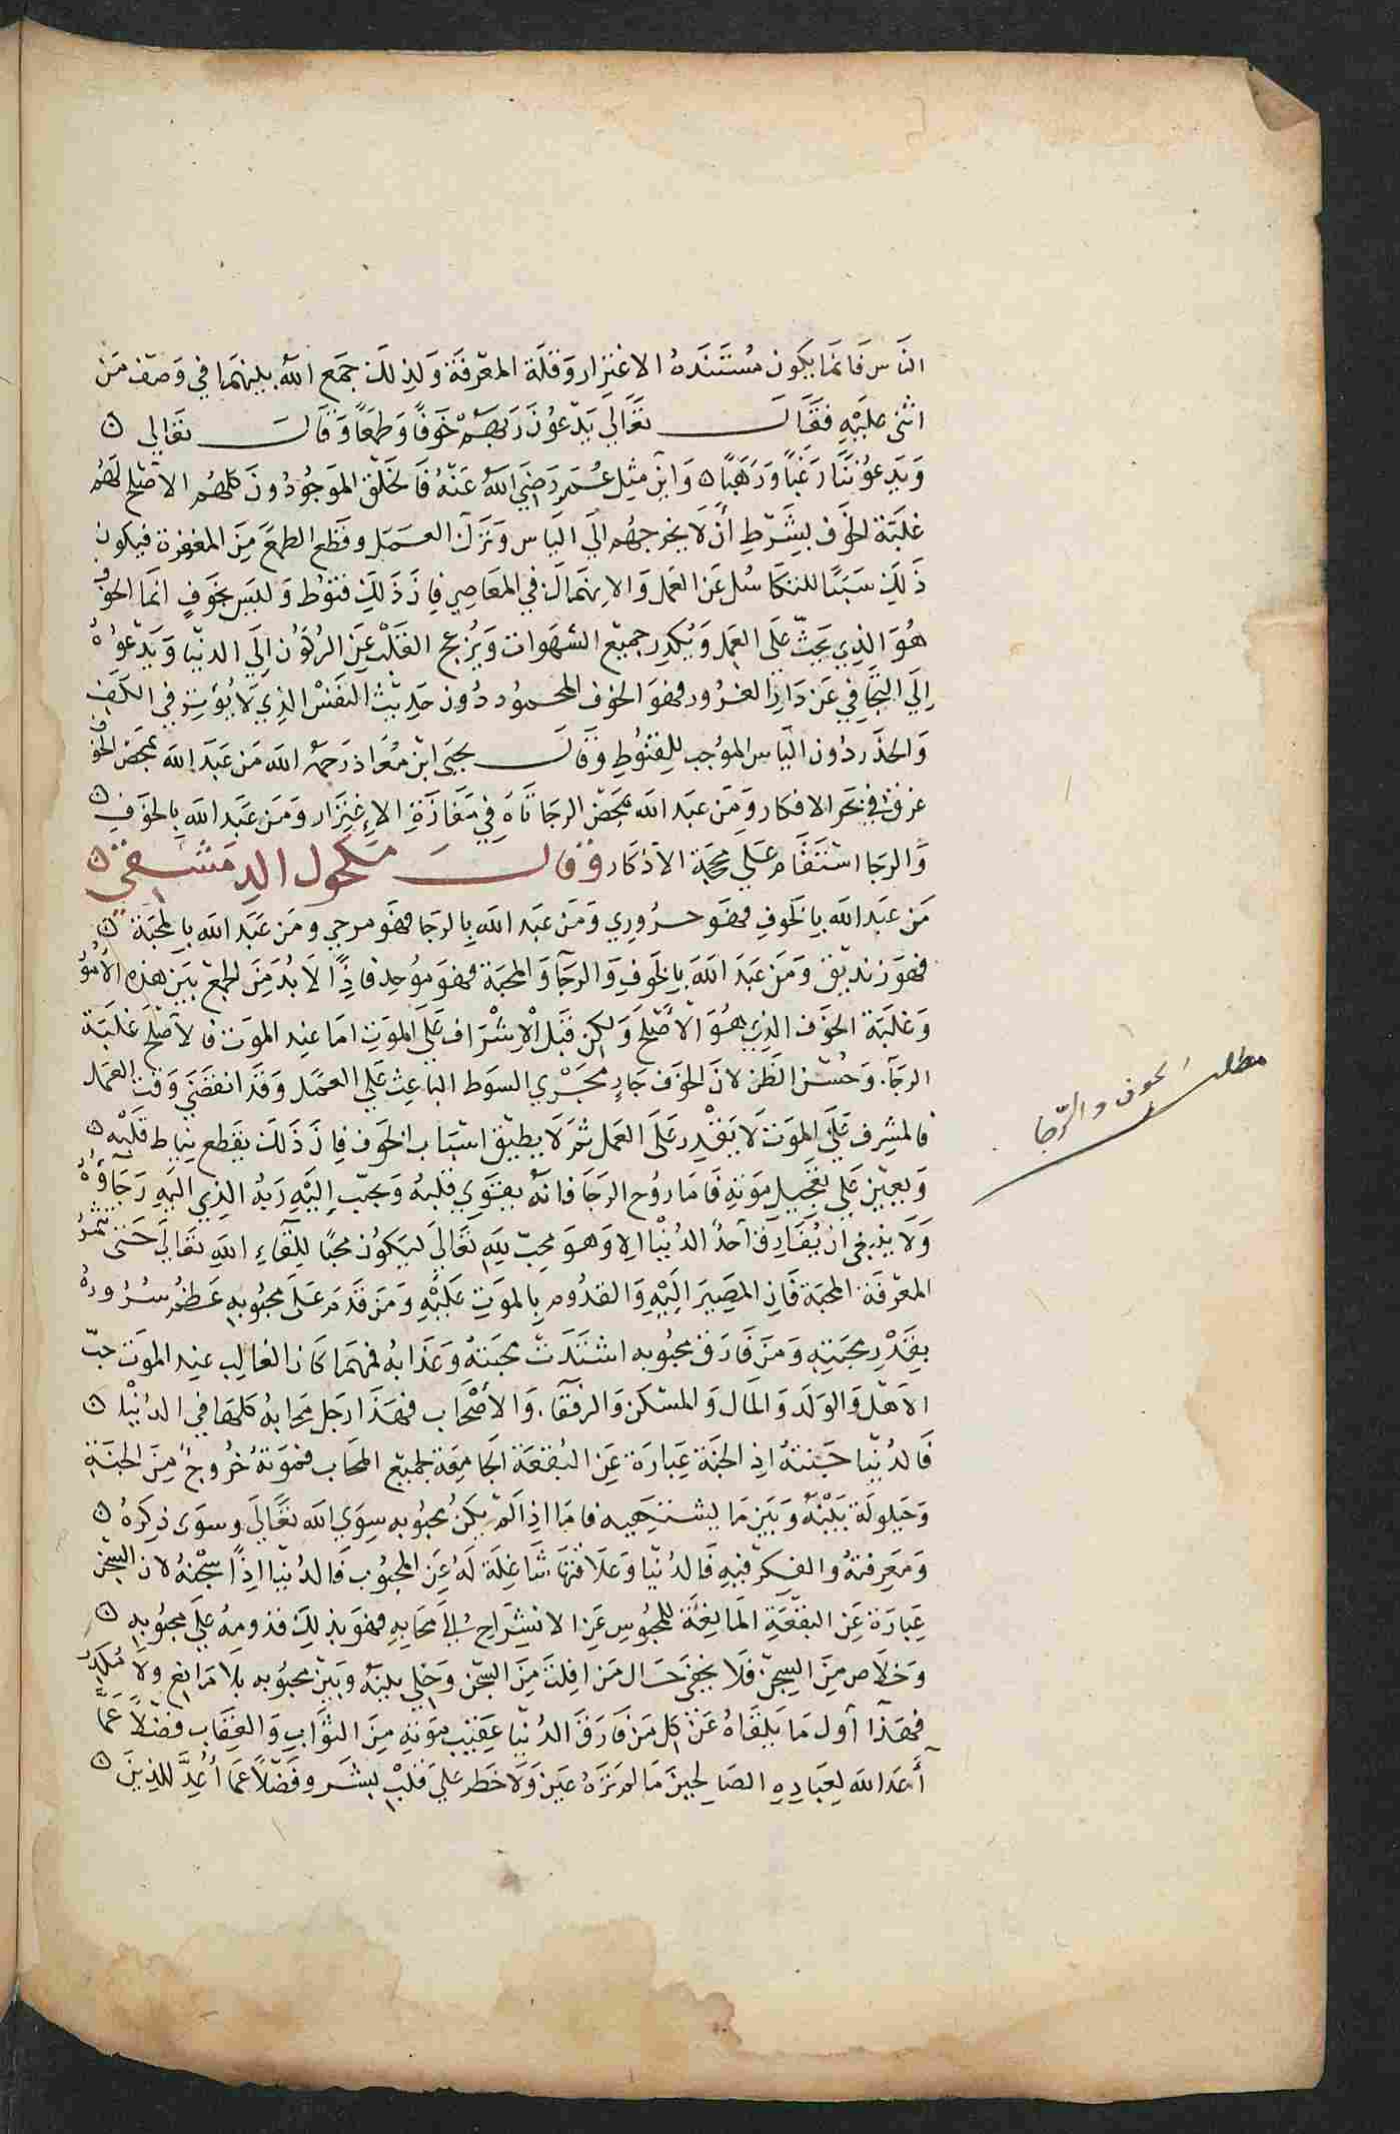 الناس فانما يكون مستنده الاغترار وقلة المعرفة ولذلك جمع الله بينهما في وصف من
اثنى عليه فقال تعالي يدعون ربهم خوفا وطمعا وقال تعالي ه
ويدعوننا رغبا ورهبا ه واين مثل عمر رضي الله عنه فالخلق الموجودون كلهم الاصلح لهم
غلبة الخوف بشرط أن لا يخرجهم الي الياس وترك العمل وقطع الطمع من المغفرة فيكون
ذلك سببا للتكاسل عن العمل والانهماك في المعاصي فان ذلك قنوط وليس بخوف انما الخوف
هو الذي يحث على العمل ويكدر جميع الشهوات ويزعج القلب عن الركون الي الدنيا ويدعوه
الي التجافي عن دار الغرور فهو الخوف المحمود دون حديث النفس الذي لا يؤثر في الكف
والحذر دون الياس الموجب للقنوط وقال يحيى ابن معاذ رحمه الله من عبد الله بمحض الخوف
غرق في بحر الافكار ومن عبد الله بمحض الرجا تاه في مفازة الاغترار ومن عبد الله بالخوف ه
والرجا استقام علي محجة الاذكار وقال مكحول الدمشقي ه
من عبد الله بالخوف فهو حروري ومن عبد الله بالرجا فهو مرجي ومن عبد الله بالمحبة ه
فهو زنديق ومن عبد الله بالخوف والرجآ والمحبة فهو موحد فاذا لا بد من الجمع بين هذه الامور
وغلبة الخوف الذي هو الاصلح ولكن قبل الاشراف على الموت اما عند الموت فالاصلح غلبة
الرجآ وحسن الظن لان الخوف جار مجرى السوط الباعث علي العمل وقد انقضى وقت العمل
فالمشرف على الموت لا يقدر على العمل ثم لا يطيق اسباب الخوف فان ذلك يقطع نياط قلبه ه
ويعين علي تعجيل موته فاما روح الرجا فانه يقوي قلبه ويحبب اليه ربه الذي اليه رجآؤه
ولا ينبغي ان يفارق احد الدنيا الا وهو محب لله تعالي ليكون محبا للقآء الله تعالي حتى تثمر
المعرفة المحبة فان المصير اليه والقدوم بالموت عليه ومن قدم على محبوبه عظم سروره
بقدر محبته ومن فارق محبوبه اشتدت محنته وعذابه فمهما كان الغالب عند الموت حب
الاهل والولد والمال والمسكن والرفقآ والأصحاب فهذا رجل محابه كلها في الدنيا ه
فالدنيا جنته اذ الجنة عبارة عن البقعة الجامعة لجميع المحاب فموته خروج من الجنة
وحيلولة بينه وبين ما يشتهيه فاما اذا لم يكن محبوبه سوي الله تعالي وسوى ذكره ه
ومعرفته والفكر فيه فالدنيا وعلاقتها شاغلة له عن المحبوب فالدنيا اذا سجنه لان السجن
عبارة عن البقعة المانعة للمحبوس عن الانشراح الي محابه فهو بذلك قدومه على محبوبه ه
وخلاص من السجن فلا يخفى حال من افلت من السجن وخلي بينه وبين محبوبه بلا مانع ولا مكدر
فهذا أول ما يلقاه عن كل من فارق الدنيا عقيب موته من الثواب والعقاب فضلا عما
أعد الله لعباده الصالحين ما لم تره عين ولا خطر علي قلب بشر وفضلا عما أعد للذين ه
مطلب الخوف والرجا